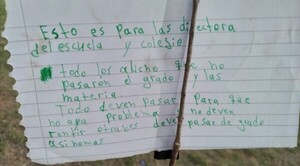 Esto es Para las directora
del escuela y colegio
todo los alucho que no
pasaron el grado y las
materia.
Todo deven pasar Para que
no aya problema no deven
otrabes deve pasar de grado
asi nomas